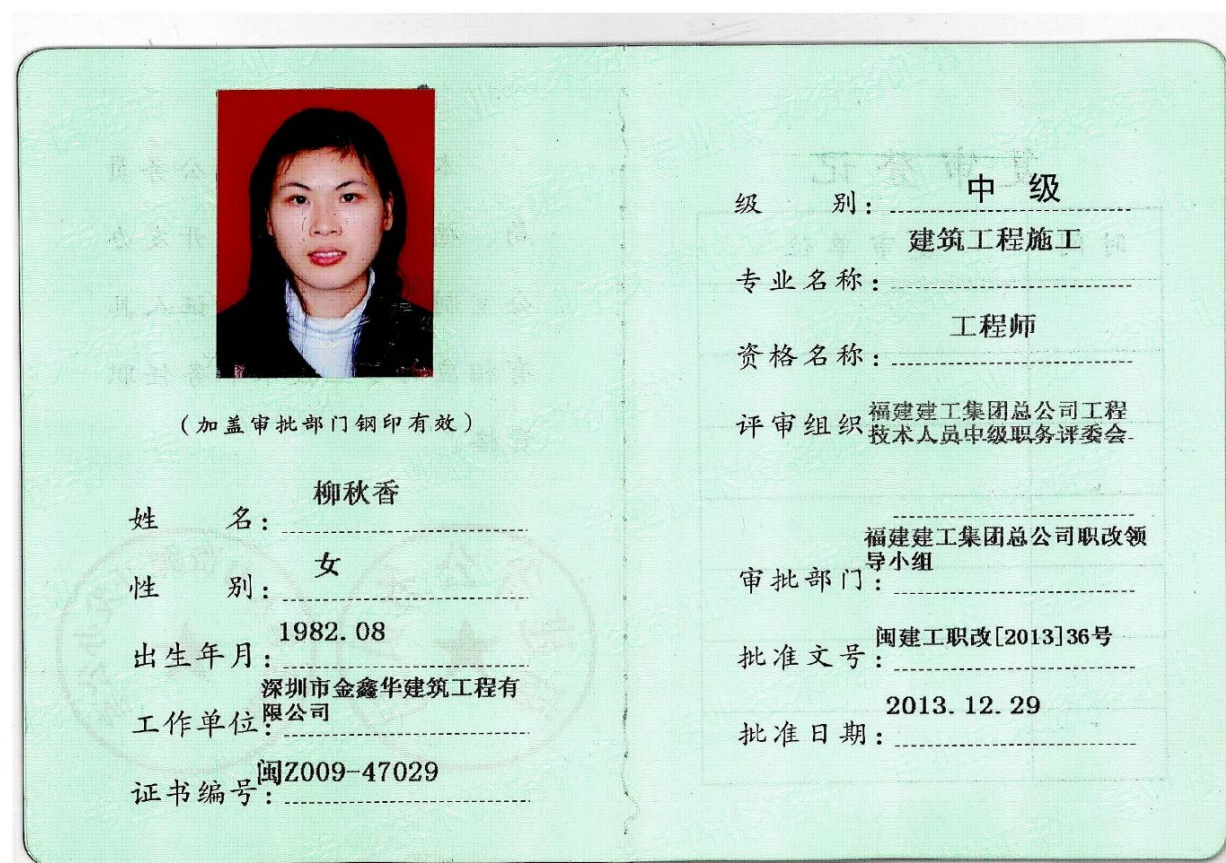 (加盖审批部门钢印有效)
姓 名: 柳秋香
性 别: 女
出生年月: 1982.08
工作单位: 深圳市金鑫华建筑工程有
限公司
证书编号: 闽Z009-47029
级 别: 中 级
专业名称: 建筑工程施工
资格名称: 工程师
评审组织 福建建工集团总公司工程
技术人员中级职务评委会
审批部门: 福建建工集团总公司职改领
导小组
批准文号: 闽建工职改[2013]36号
批准日期: 2013.12.29